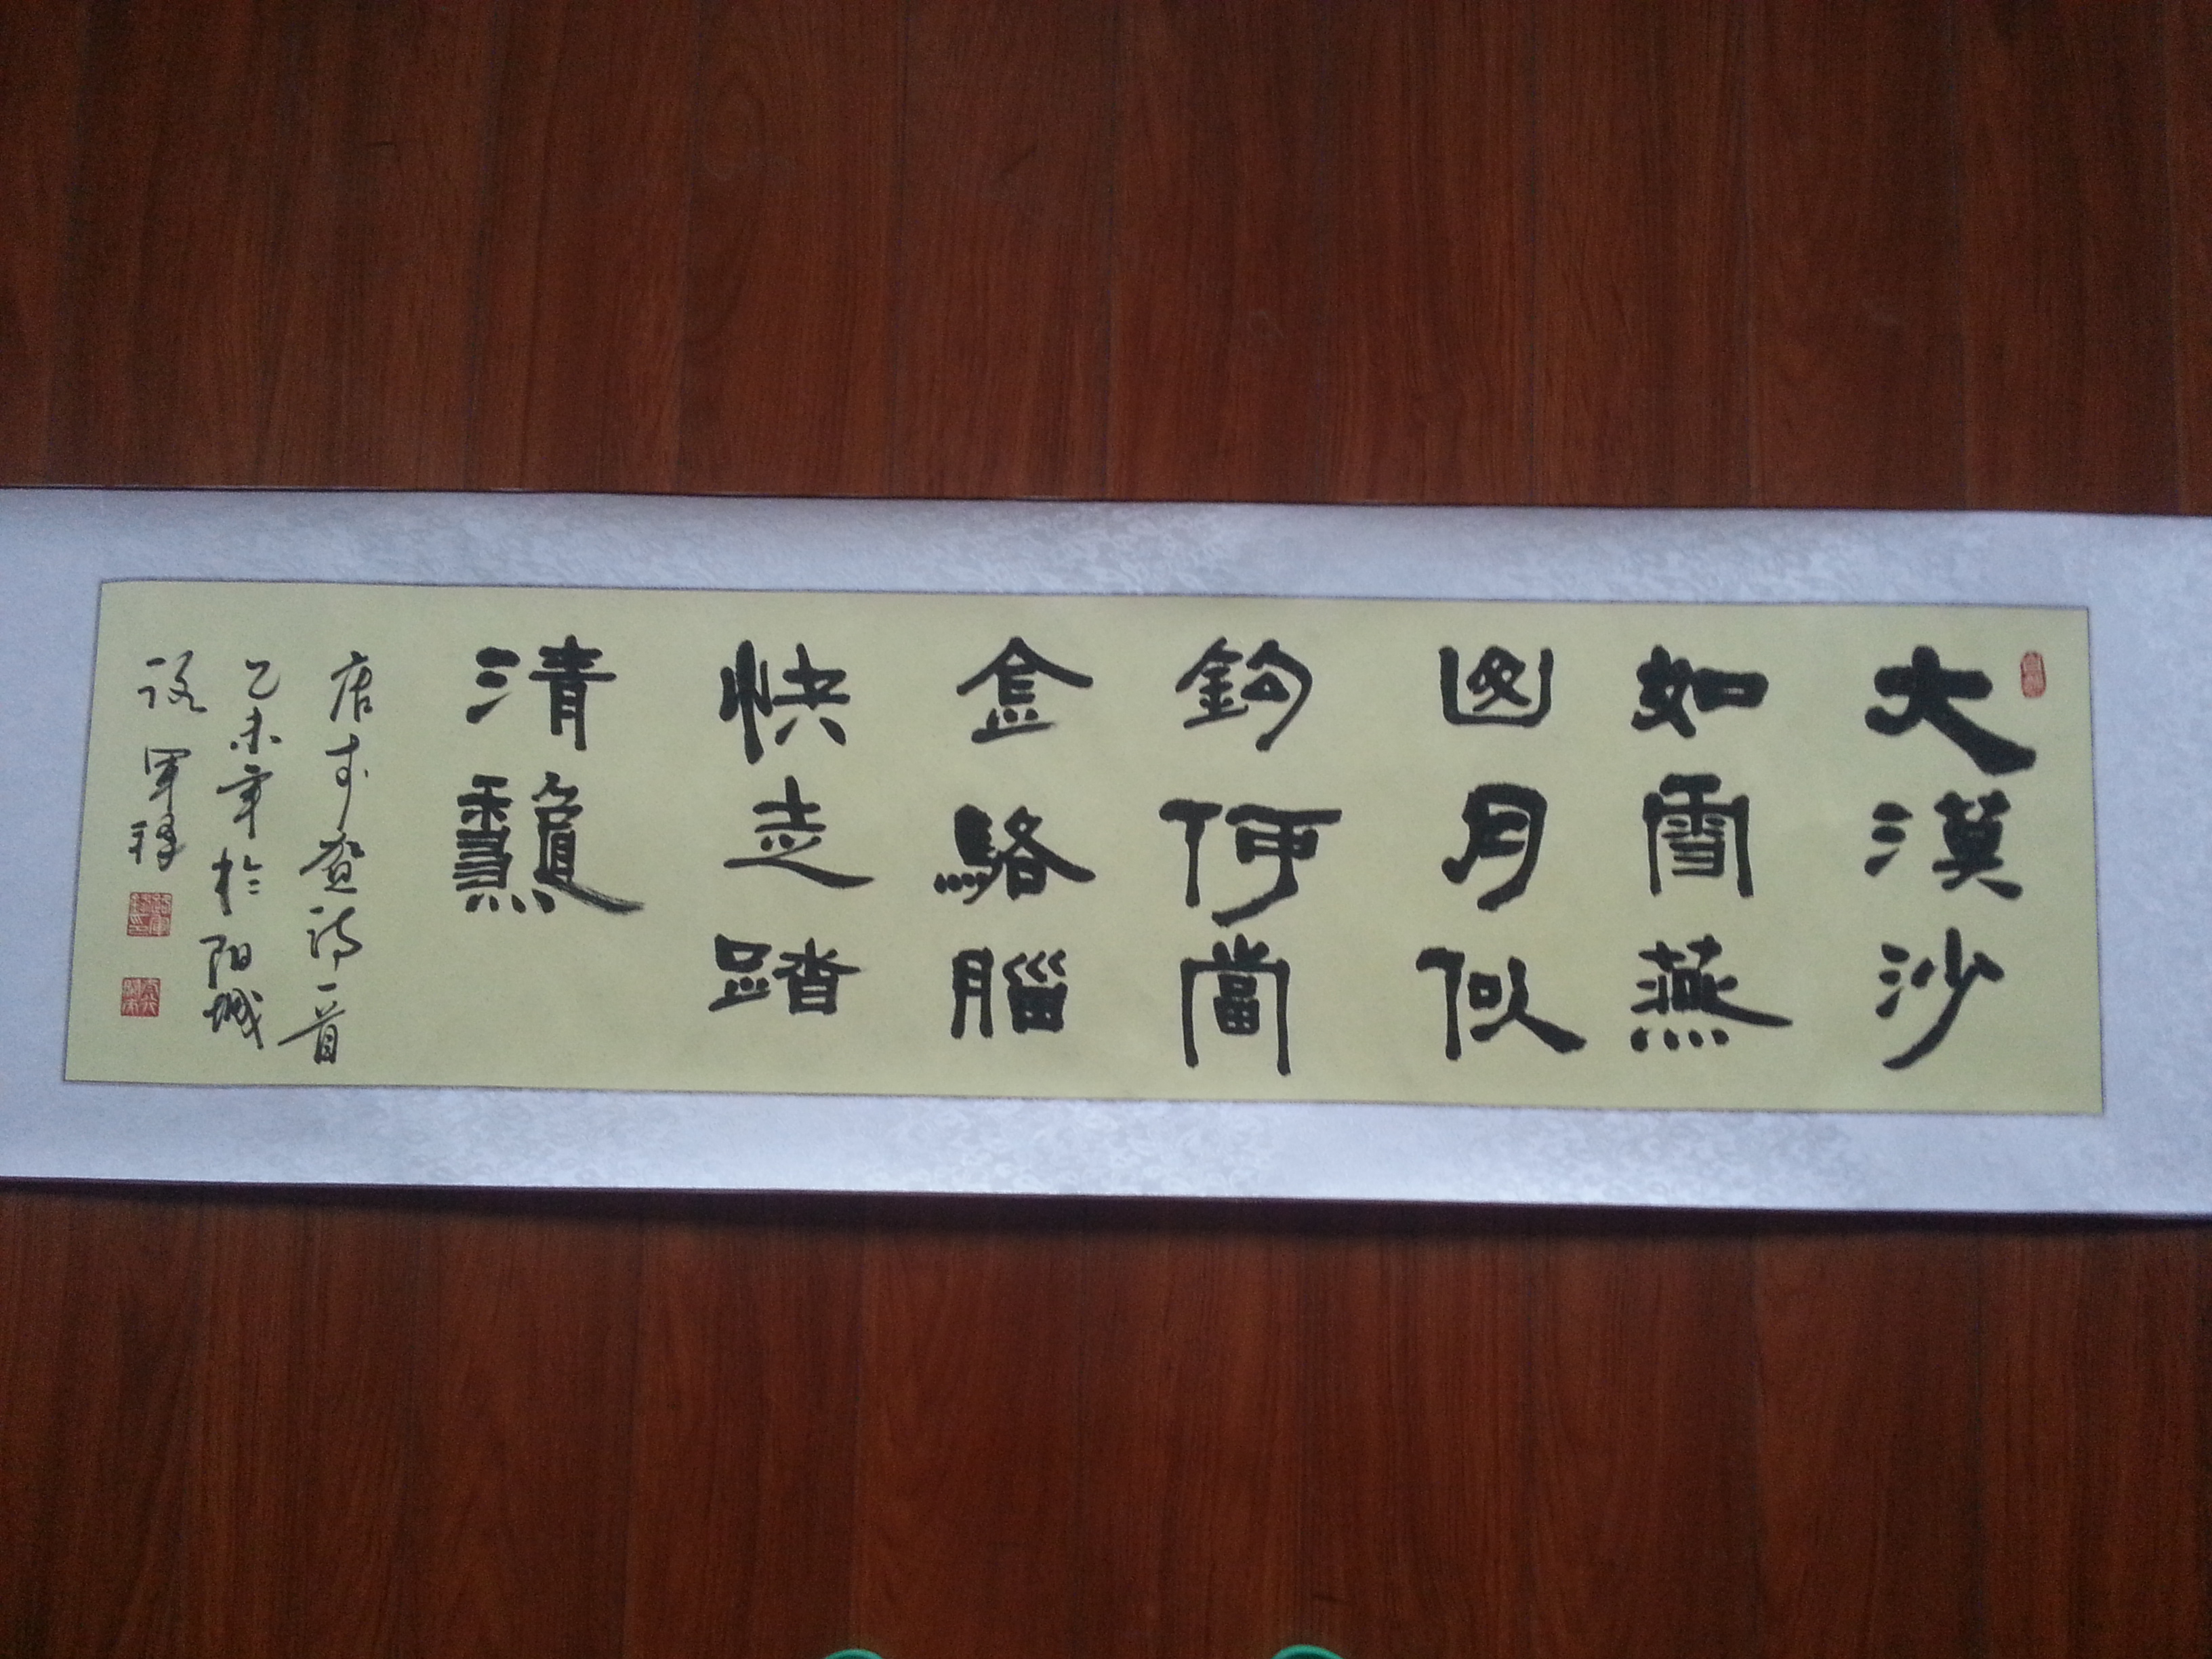 大漠沙
如雪燕
山月似
鈎何當
金駱腦
快走踏
清龝
唐李賀詩一首
乙未年於阳城
路軍祥